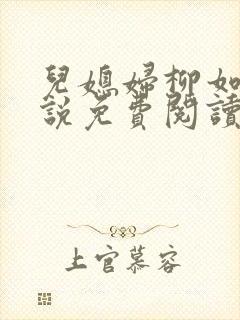 兒媳婦柳如
說免費閱讀
上官慕容